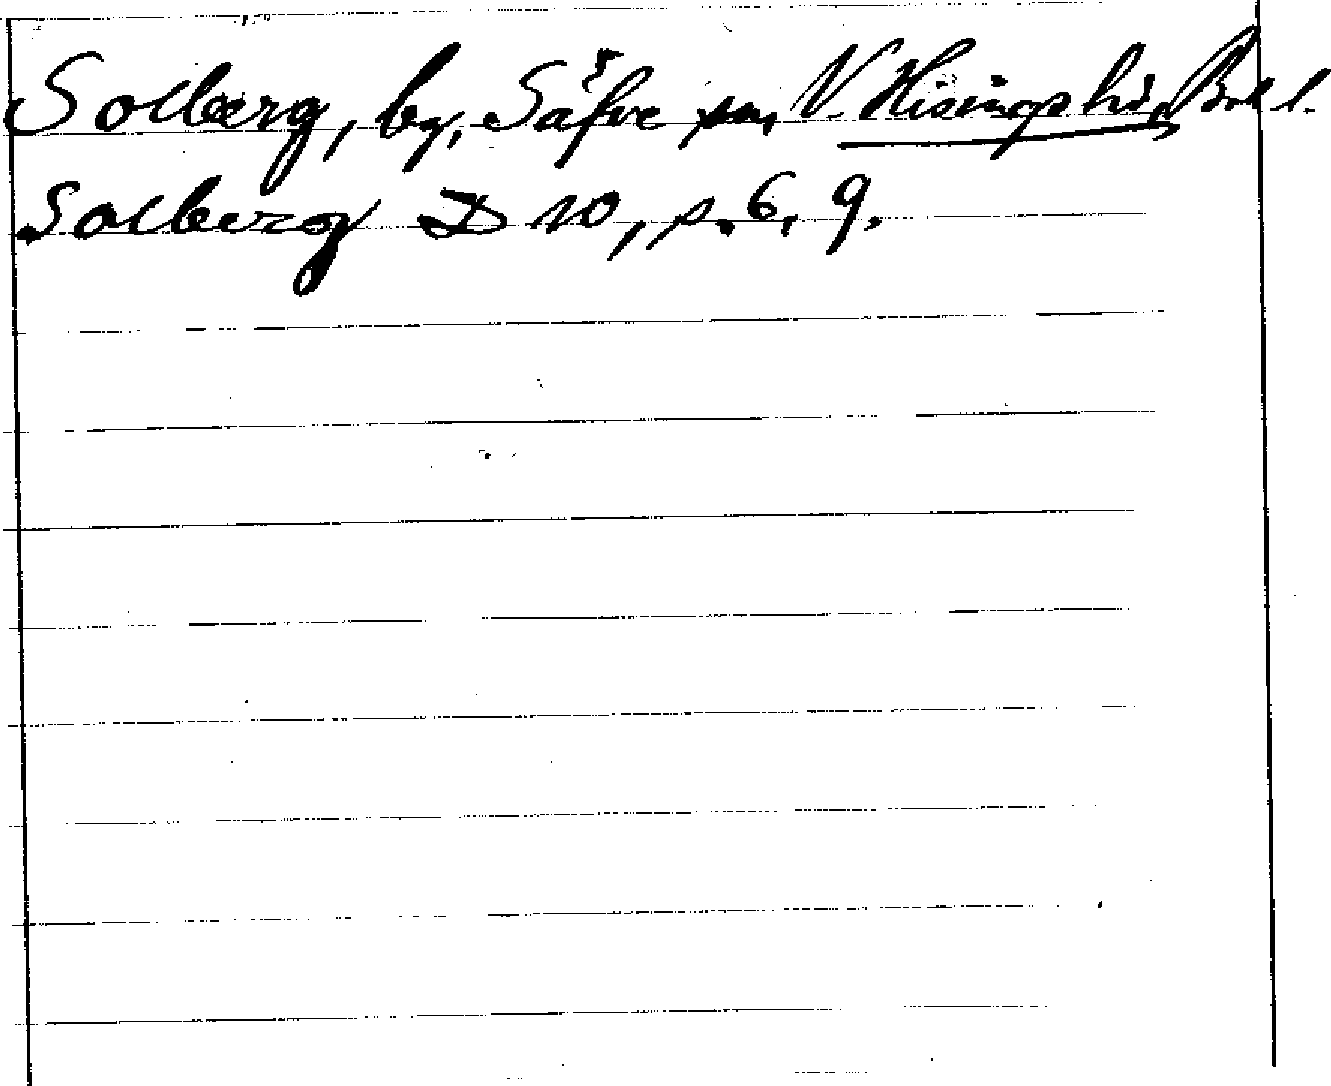 Solberg, by, Säfve sn, V. Hisings hd, Boh l.
Solberg D 10, s. 6, 9.